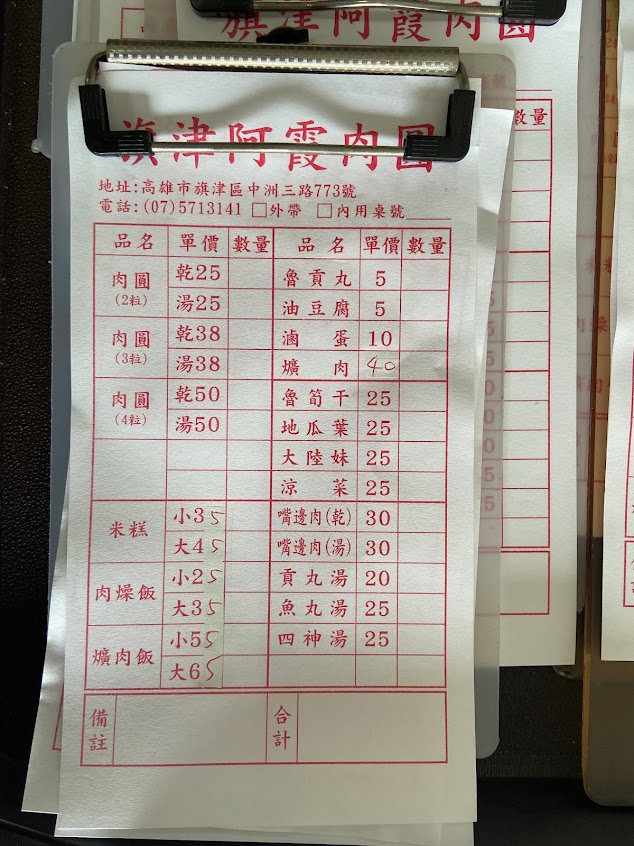 旗津阿霞肉圓
數量
旗津阿霞肉圓
地址:高雄市旗津區中洲三路773號
電話:(07)5713141 □外帶 □內用桌號____
品名 單價 數量 品名 單價 數量
肉圓(2粒) 乾25 魯貢丸 5
湯25 油豆腐 5
肉圓(3粒) 乾38 滷蛋 10
湯38 爌肉 40
肉圓(4粒) 乾50 魯筍干 25
湯50 地瓜葉 25
大陸妹 25
涼菜 25
米糕 小35 嘴邊肉(乾) 30
大45 嘴邊肉(湯) 30
肉燥飯 小25 貢丸湯 20
大35 魚丸湯 25
爌肉飯 小55 四神湯 25
大65
備註 合計